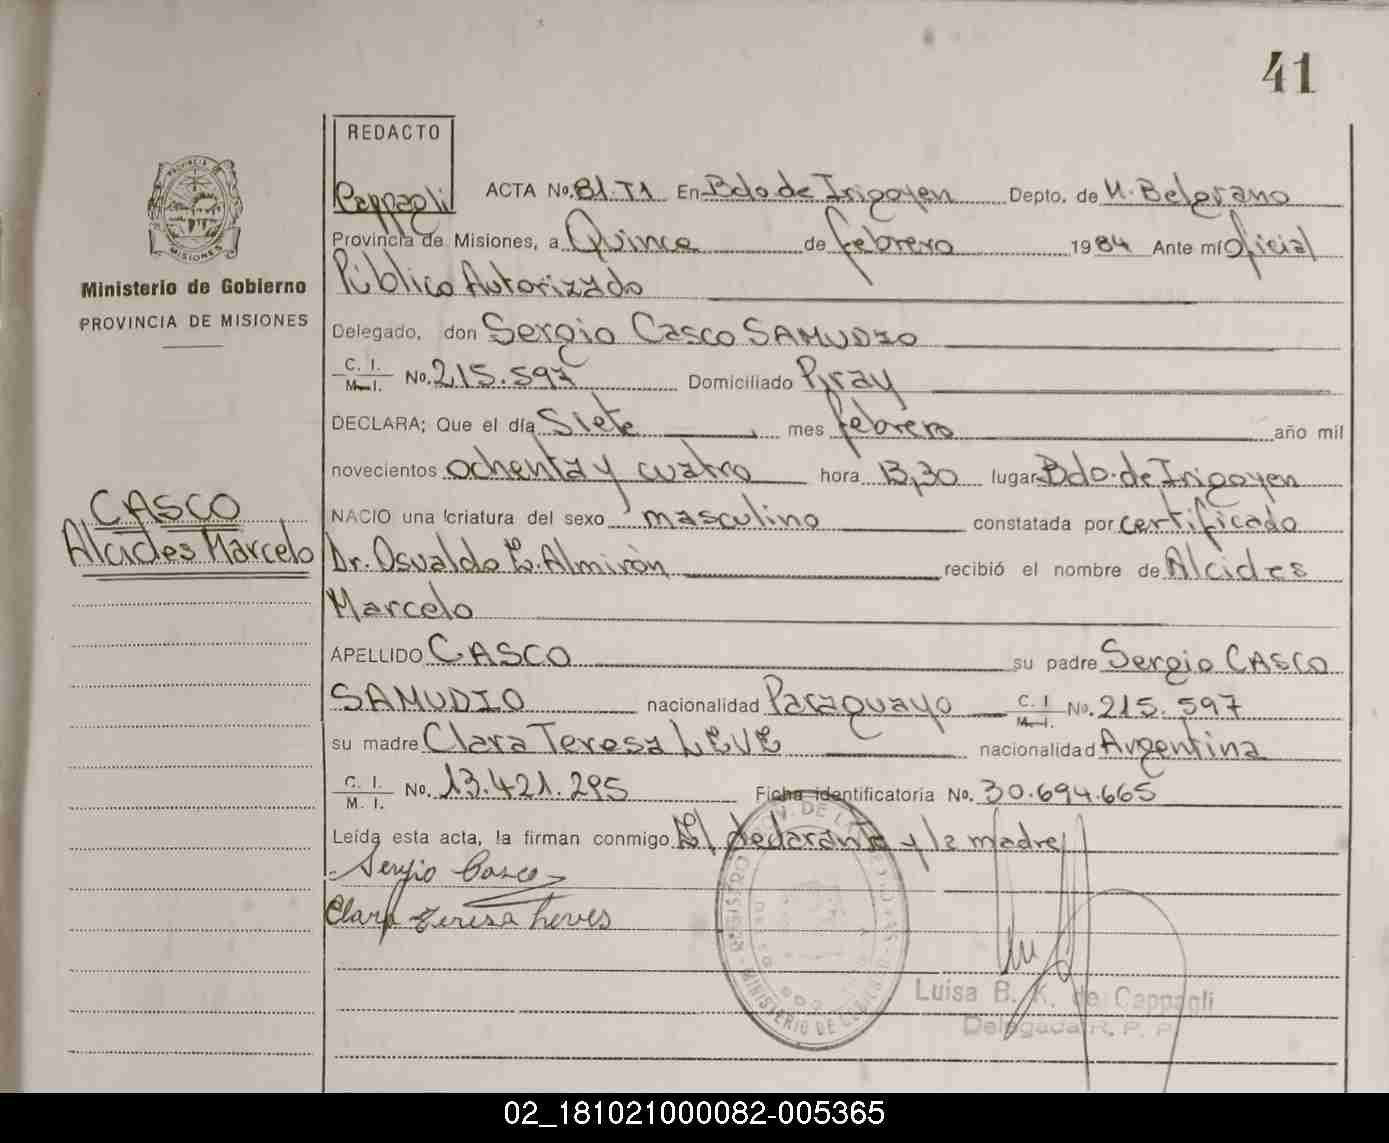 41
REDACTO
Cappagli
ACTA No. 81.T1 En Bdo de Irigoyen Depto. de M. Belgrano
Provincia de Misiones, a Quince de febrero 1984 Ante mí Oficial
Público Autorizado
Delegado, don Sergio Casco SAMUDIO
C. I. M. I. No. 215.597 Domiciliado Piray
DECLARA; Que el día Siete mes febrero año mil
novecientos ochenta y cuatro hora 13,30 lugar Bdo. de Irigoyen
NACIO una criatura del sexo masculino constatada por certificado
Dr. Osvaldo E. Almirón recibió el nombre de Alcides
Marcelo
APELLIDO CASCO su padre Sergio CASCO
SAMUDIO nacionalidad Paraguayo C. I M. I. No. 215.597
su madre Clara Teresa LEVE nacionalidad Argentina
C. I. M. I. No. 13.421.295 Ficha identificatoria No. 30.694.665
Leída esta acta, la firman conmigo El declarante y la madre
Sergio Casco
Clara Teresa Leves
PROVINCIA DE
MISIONES
Ministerio de Gobierno
PROVINCIA DE MISIONES
CASCO
Alcides Marcelo
MINISTERIO DE GOBIERNO
Luisa B. K. de Cappagli
Delegada R. P. P.
02_181021000082-005365